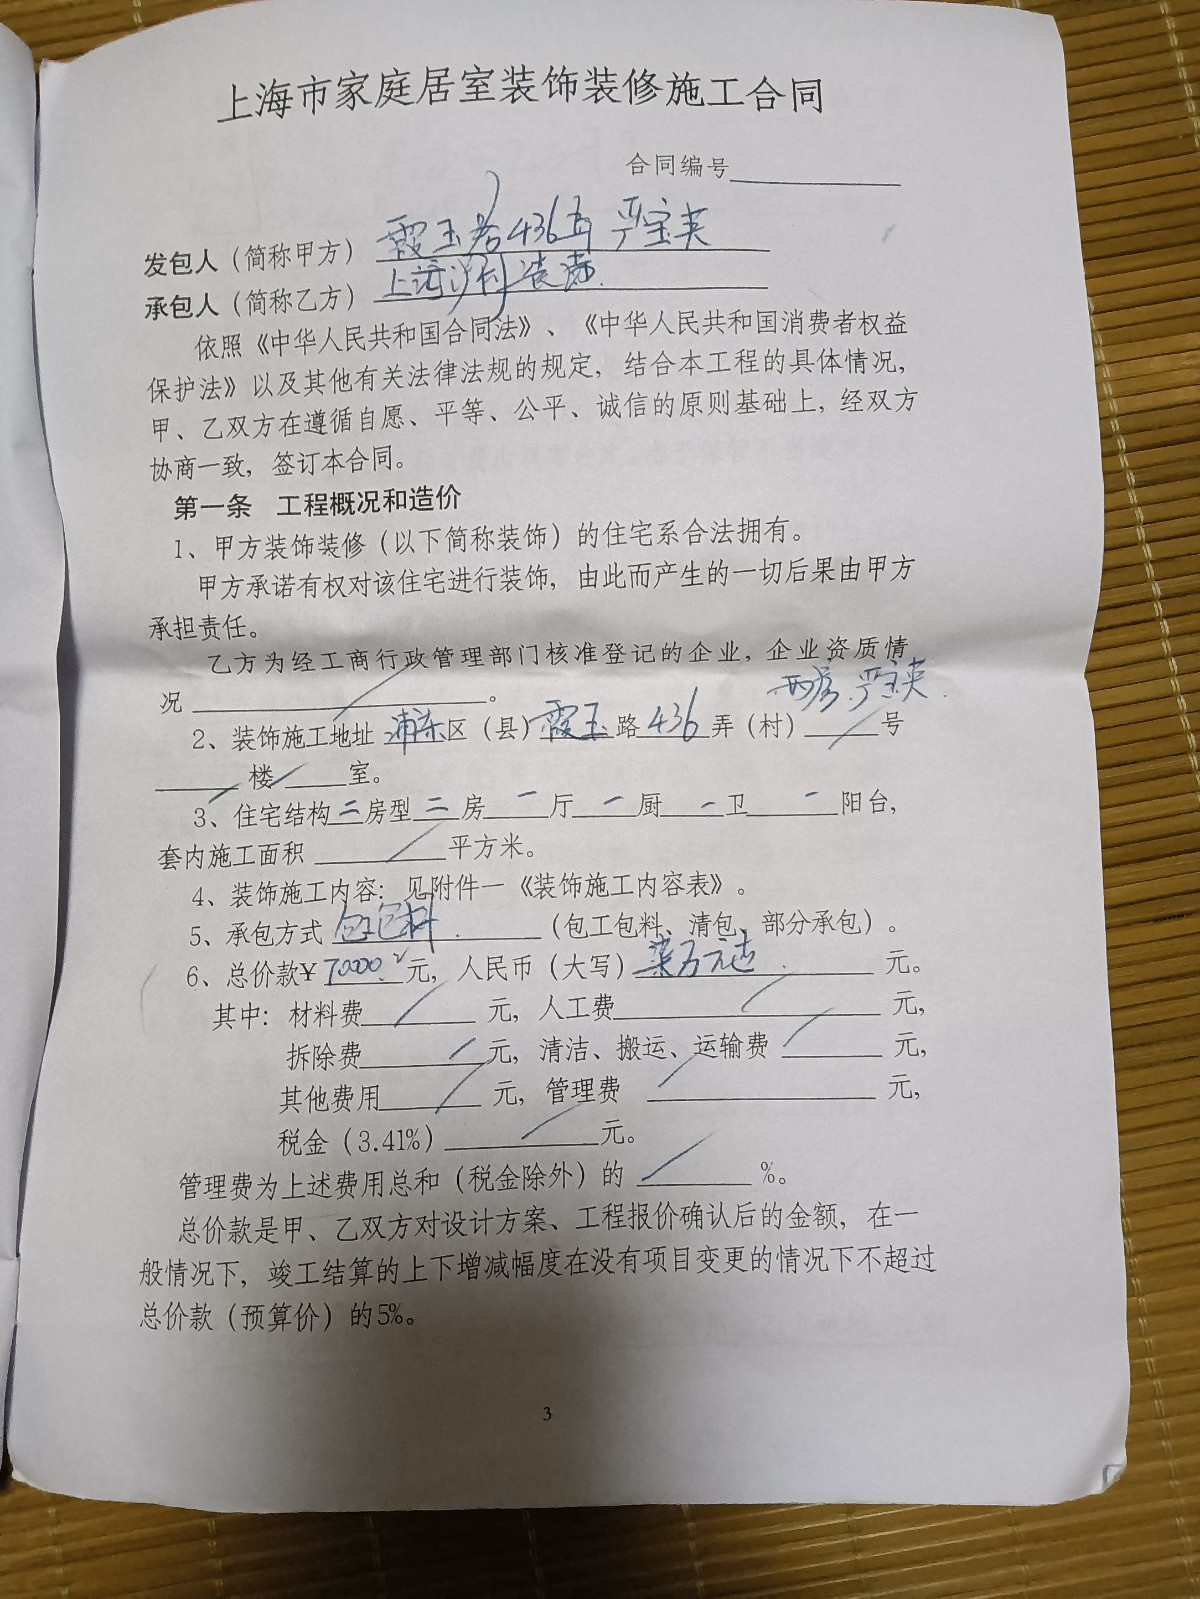 上海市家庭居室装饰装修施工合同
合同编号
发包人（简称甲方）霞玉路436弄 严宝英
承包人（简称乙方）上海 装潢
依照《中华人民共和国合同法》、《中华人民共和国消费者权益
保护法》以及其他有关法律法规的规定，结合本工程的具体情况，
甲、乙双方在遵循自愿、平等、公平、诚信的原则基础上，经双方
协商一致，签订本合同。
第一条 工程概况和造价
1、甲方装饰装修（以下简称装饰）的住宅系合法拥有。
甲方承诺有权对该住宅进行装饰，由此而产生的一切后果由甲方
承担责任。
乙方为经工商行政管理部门核准登记的企业，企业资质情
况 / 。
严宝英
2、装饰施工地址 浦东区（县）霞玉路436弄（村） / 号
/ 楼 / 室。
3、住宅结构二房型二房一厅一厨一卫一阳台，
套内施工面积 / 平方米。
4、装饰施工内容：见附件一《装饰施工内容表》。
5、承包方式 包工包料 （包工包料、清包、部分承包）。
6、总价款¥ 70000 元，人民币（大写）柒万元 元。
其中：材料费 / 元，人工费 / 元，
拆除费 / 元，清洁、搬运、运输费 / 元，
其他费用 / 元，管理费 / 元，
税金（3.41%） / 元。
管理费为上述费用总和（税金除外）的 / %。
总价款是甲、乙双方对设计方案、工程报价确认后的金额，在一
般情况下，竣工结算的上下增减幅度在没有项目变更的情况下不超过
总价款（预算价）的5%。
3